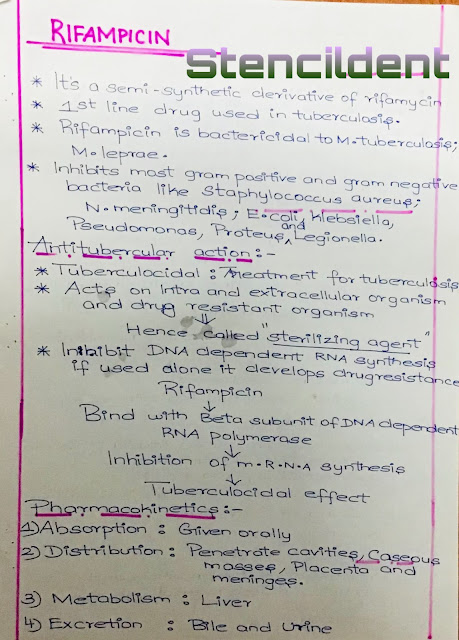 RIFAMPICIN
Stencildent
* It's a semi-synthetic derivative of rifamycin
* 1st line drug used in tuberculosis.
* Rifampicin is bactericidal to M.tuberculosis;
M.leprae.
* Inhibits most gram positive and gram negative
bacteria like Staphylococcus aureus;
N.meningitidis; E.coli, Klebsiella,
Pseudomonas, Proteus and Legionella.
Antitubercular action:-
* Tuberculocidal : Treatment for tuberculosis
* Acts on Intra and extracellular organism
and drug resistant organism
↓
Hence called "sterilizing agent"
* Inhibit DNA dependent RNA synthesis
if used alone it develops drugresistance
Rifampicin
↓
Bind with Beta subunit of DNA dependent
RNA polymerase
↓
Inhibition of m.R.N.A synthesis
↓
Tuberculocidal effect
Pharmacokinetics:-
1) Absorption : Given orally
2) Distribution : Penetrate cavities, Caseous
masses, Placenta and
meninges.
3) Metabolism : Liver
4) Excretion : Bile and Urine